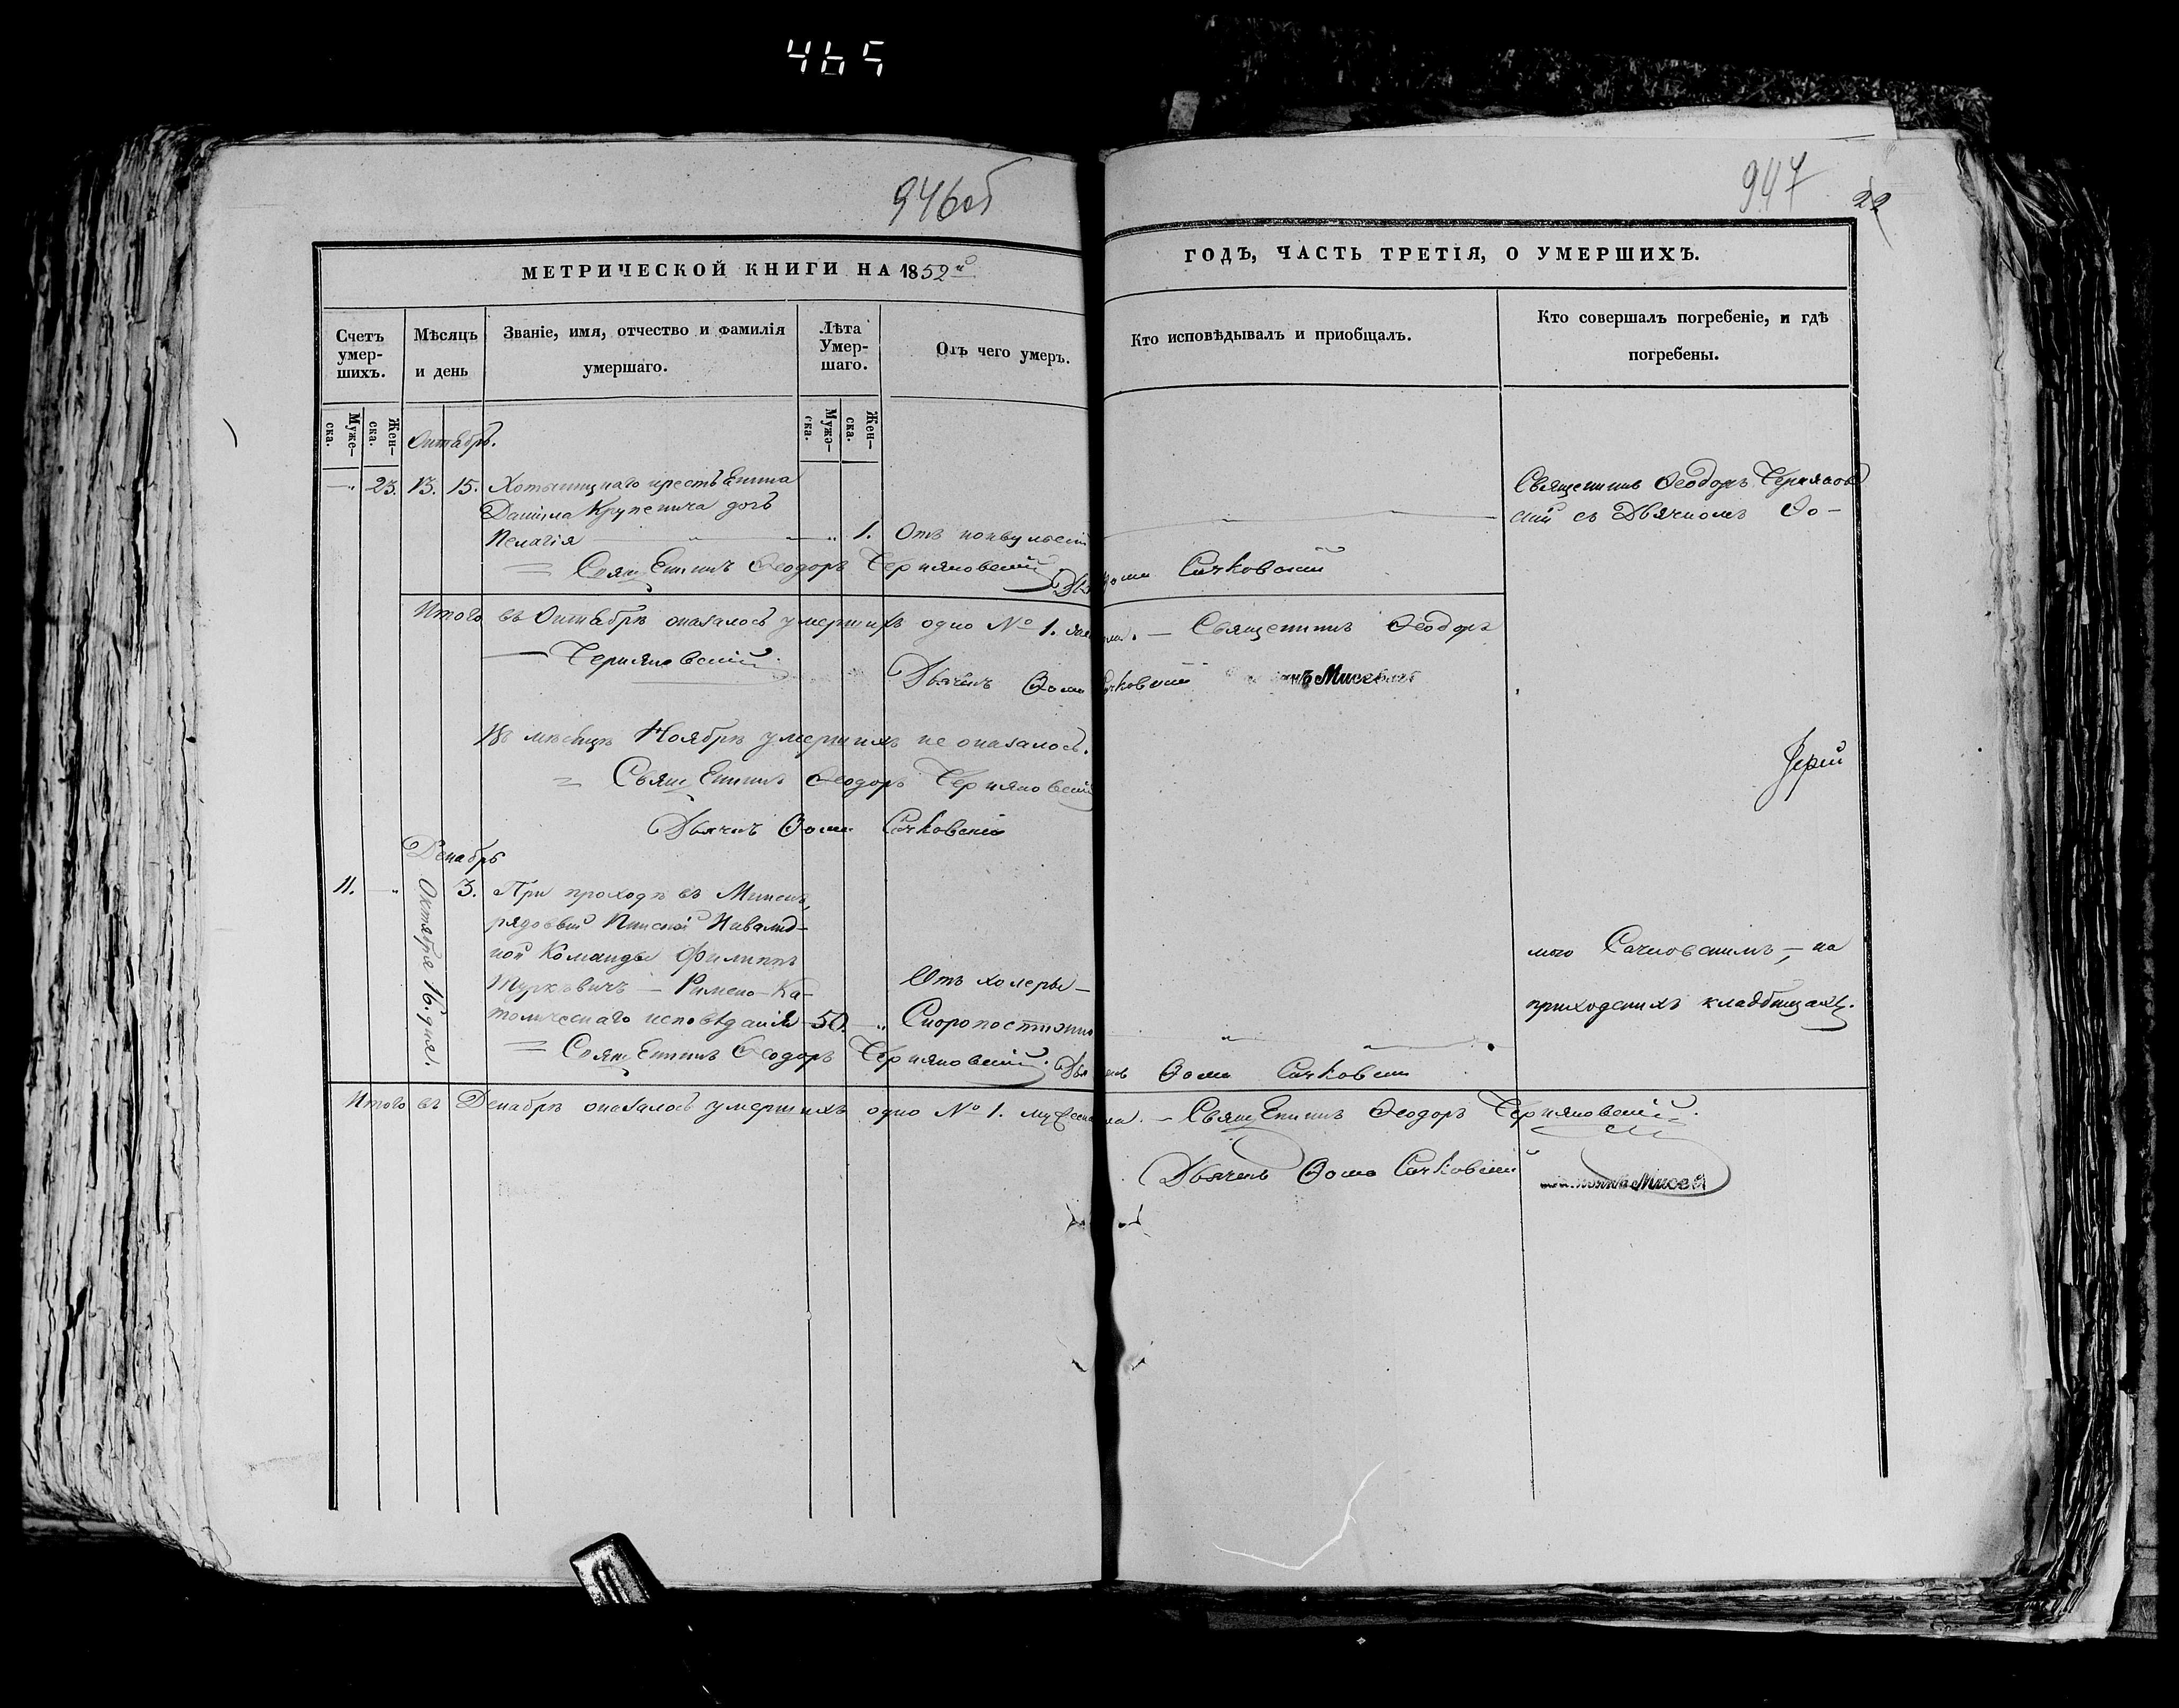 465
946об
947
22
МЕТРИЧЕСКОЙ КНИГИ НА 1852й
ГОДЪ, ЧАСТЬ ТРЕТІЯ, О УМЕРШИХЪ.
Счетъ умер-шихъ.
Мѣсяцъ и день
Званіе, имя, отчество и фамилія умершаго.
Лѣта Умер-шаго.
Отъ чего умеръ.
Кто исповѣдывалъ и пріобщалъ.
Кто совершалъ погребеніе, и гдѣ погребены.
Муже-ска.
Жен-ска.
Муже-ска.
Жен-ска.
Октабрь.
23. 13. 15. Хотыницкаго крест
Даніила Крупенича дочь
Пелагія 1. Отъ конвульсій
Священникъ Ѳеодоръ Черняковскій
Дьячокъ Ѳома Сачковскій
Священникъ Ѳеодоръ Черняков
скій съ Дьячкомъ Ѳо-
Итого въ Октабрѣ оказалось умершихъ одно № 1. – Священникъ Ѳеодоръ
Черняковскій
Дьячекъ Ѳома Сачковскій
Въ мѣсяцѣ Ноябрѣ умершихъ не оказалось.
Священникъ Ѳеодоръ Черняковскій
Дьячекъ Ѳома Сачковскій
Іерей
Декабрь
11. Октября 16. дня. 3. При проходѣ въ Минскъ,
рядовый Пинской Инвалид-
ной Команды Филиппъ
Туркѣвичъ – Римско-Ка-
толическаго исповѣданія 50.
Отъ холеры –
Скоропостижно
мою Сачковскимъ, – на
приходскихъ кладбищахъ.
Священникъ Ѳеодоръ Черняковскій.
Дьячекъ Ѳома Сачковскій
Итого въ Декабрѣ оказалось умершихъ одно № 1. мужеска пола. – Священникъ Ѳеодоръ Черняковскій.
Дьячекъ Ѳома Сачковскій